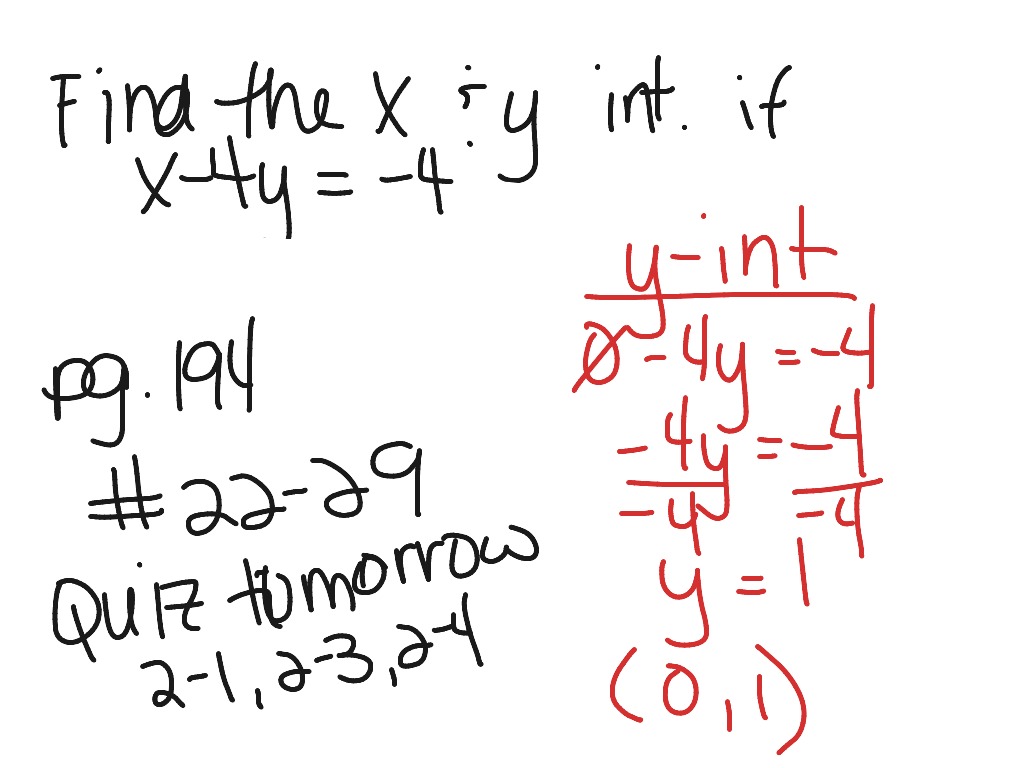 Find the x & y int. if
x-4y = -4
pg. 194
#22-29
Quiz tomorrow
2-1, 2-3, 2-4
y-int
0 - 4y = -4
-4y = -4
-4 -4
y = 1
(0,1)